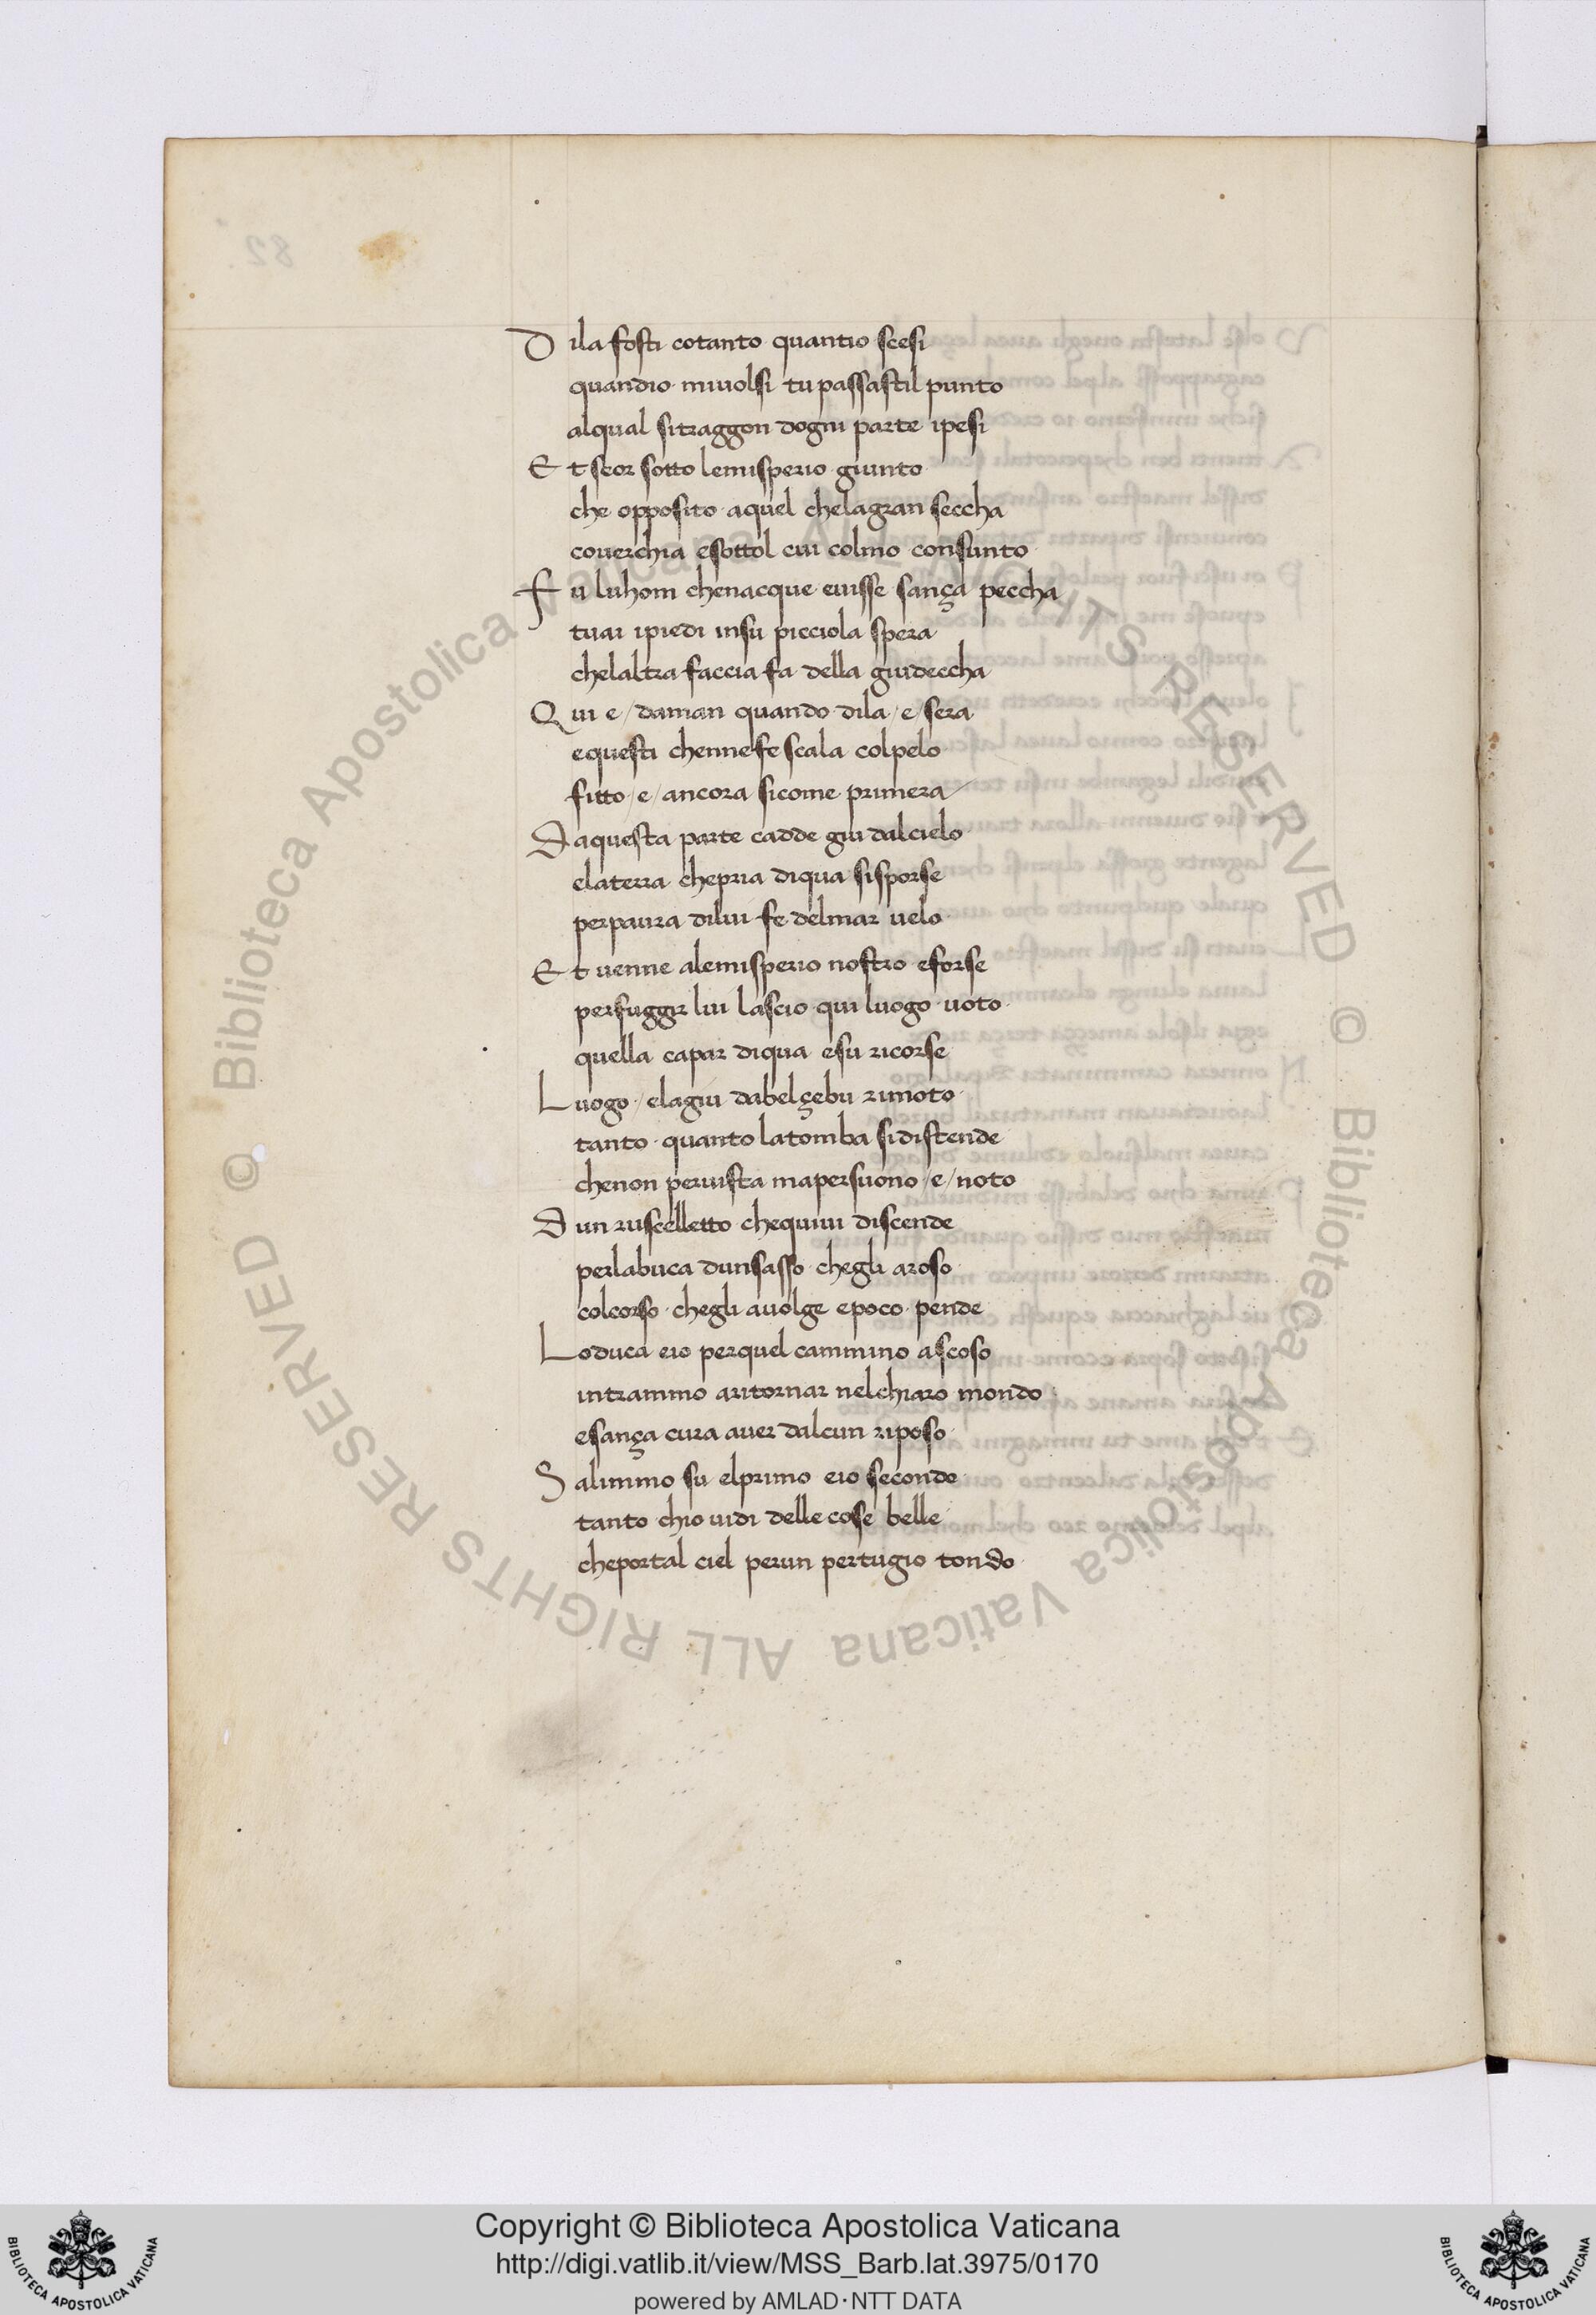 D ila fosti cotanto quantio scesi
quandio miuolsi tu passastil punto
alqual sitraggon dogni parte ipesi
E t seor sotto lemisperio giunto
che opposito aquel chelagran seccha
couerchia esottol cui colmo consunto
F u luhom chenacque euisse sança peccha
tuai ipiedi insu picciola spera
chelaltra faccia fa della giudeccha
Q ui e / daman quando dila / e / sera
equesti chennefe scala colpelo
fitto / e / ancora sicome primera
D aquesta parte cadde giu dalcielo
elaterra chepria diqua sisporse
perpaura dilui fe delmar uelo
E t uenne alemisperio nostro eforse
perfuggir lui lascio qui luogo uoto
quella capar diqua esu ricorse
L uogo / elagiu dabelçebu rimoto
tanto quanto latomba sidistende
chenon peruista mapersuono / e / noto
D un ruscelletto chequiui discende
perlabuca dunsasso chegli aroso
colcorso chegli auolge epoco pende
L oduca eio perquel cammino ascoso
intrammo aritornar nelchiaro mondo
esança cura auer dalcun riposo
S alimmo su elprimo eio secondo
tanto chio uidi delle cose belle
cheportal ciel perun pertugio tondo
© Biblioteca Apostolica Vaticana ALL RIGHTS RESERVED © Biblioteca Apostolica Vaticana ALL RIGHTS RESERVED
Copyright © Biblioteca Apostolica Vaticana
http://digi.vatlib.it/view/MSS_Barb.lat.3975/0170
powered by AMLAD·NTT DATA
BIBLIOTECA APOSTOLICA VATICANA
BIBLIOTECA APOSTOLICA VATICANA